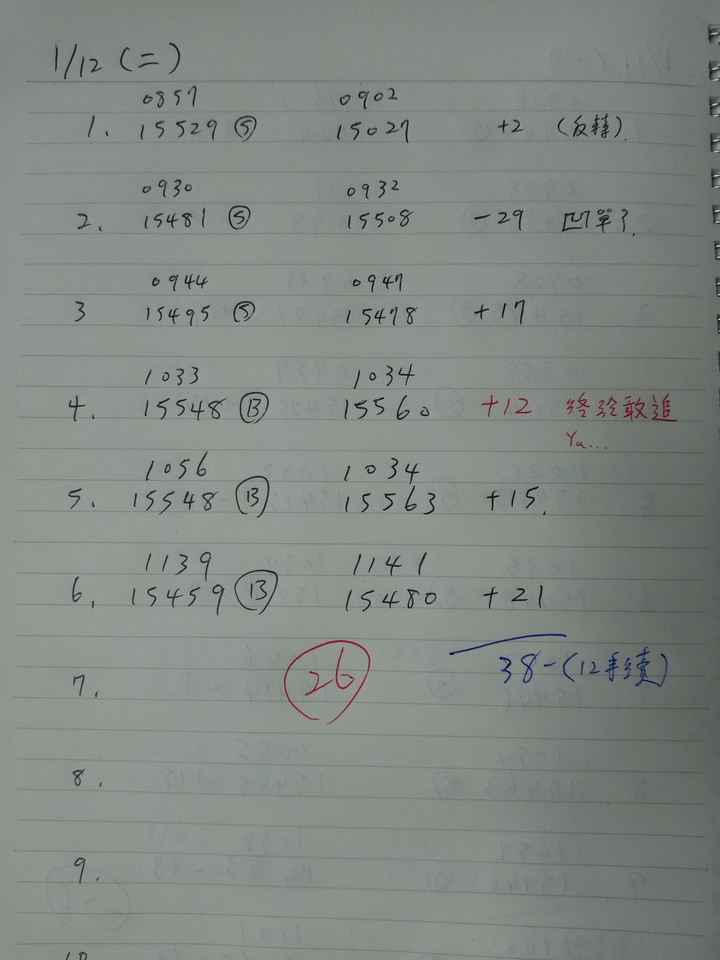 1/12 (二)
0857 0902
1. 15529 Ⓢ 15027 +2 (反轉)
0930 0932
2. 15481 Ⓢ 15508 -29 凹單了.
0944 0947
3 15495 Ⓢ 15478 +17
1033 1034
4. 15548 Ⓑ 15560 +12 終於敢追
Ya...
1056 1034
5. 15548 Ⓑ 15563 +15.
1139 1141
6. 15459 Ⓑ 15480 +21
38-(12手續)
7. 26
8.
9.
10